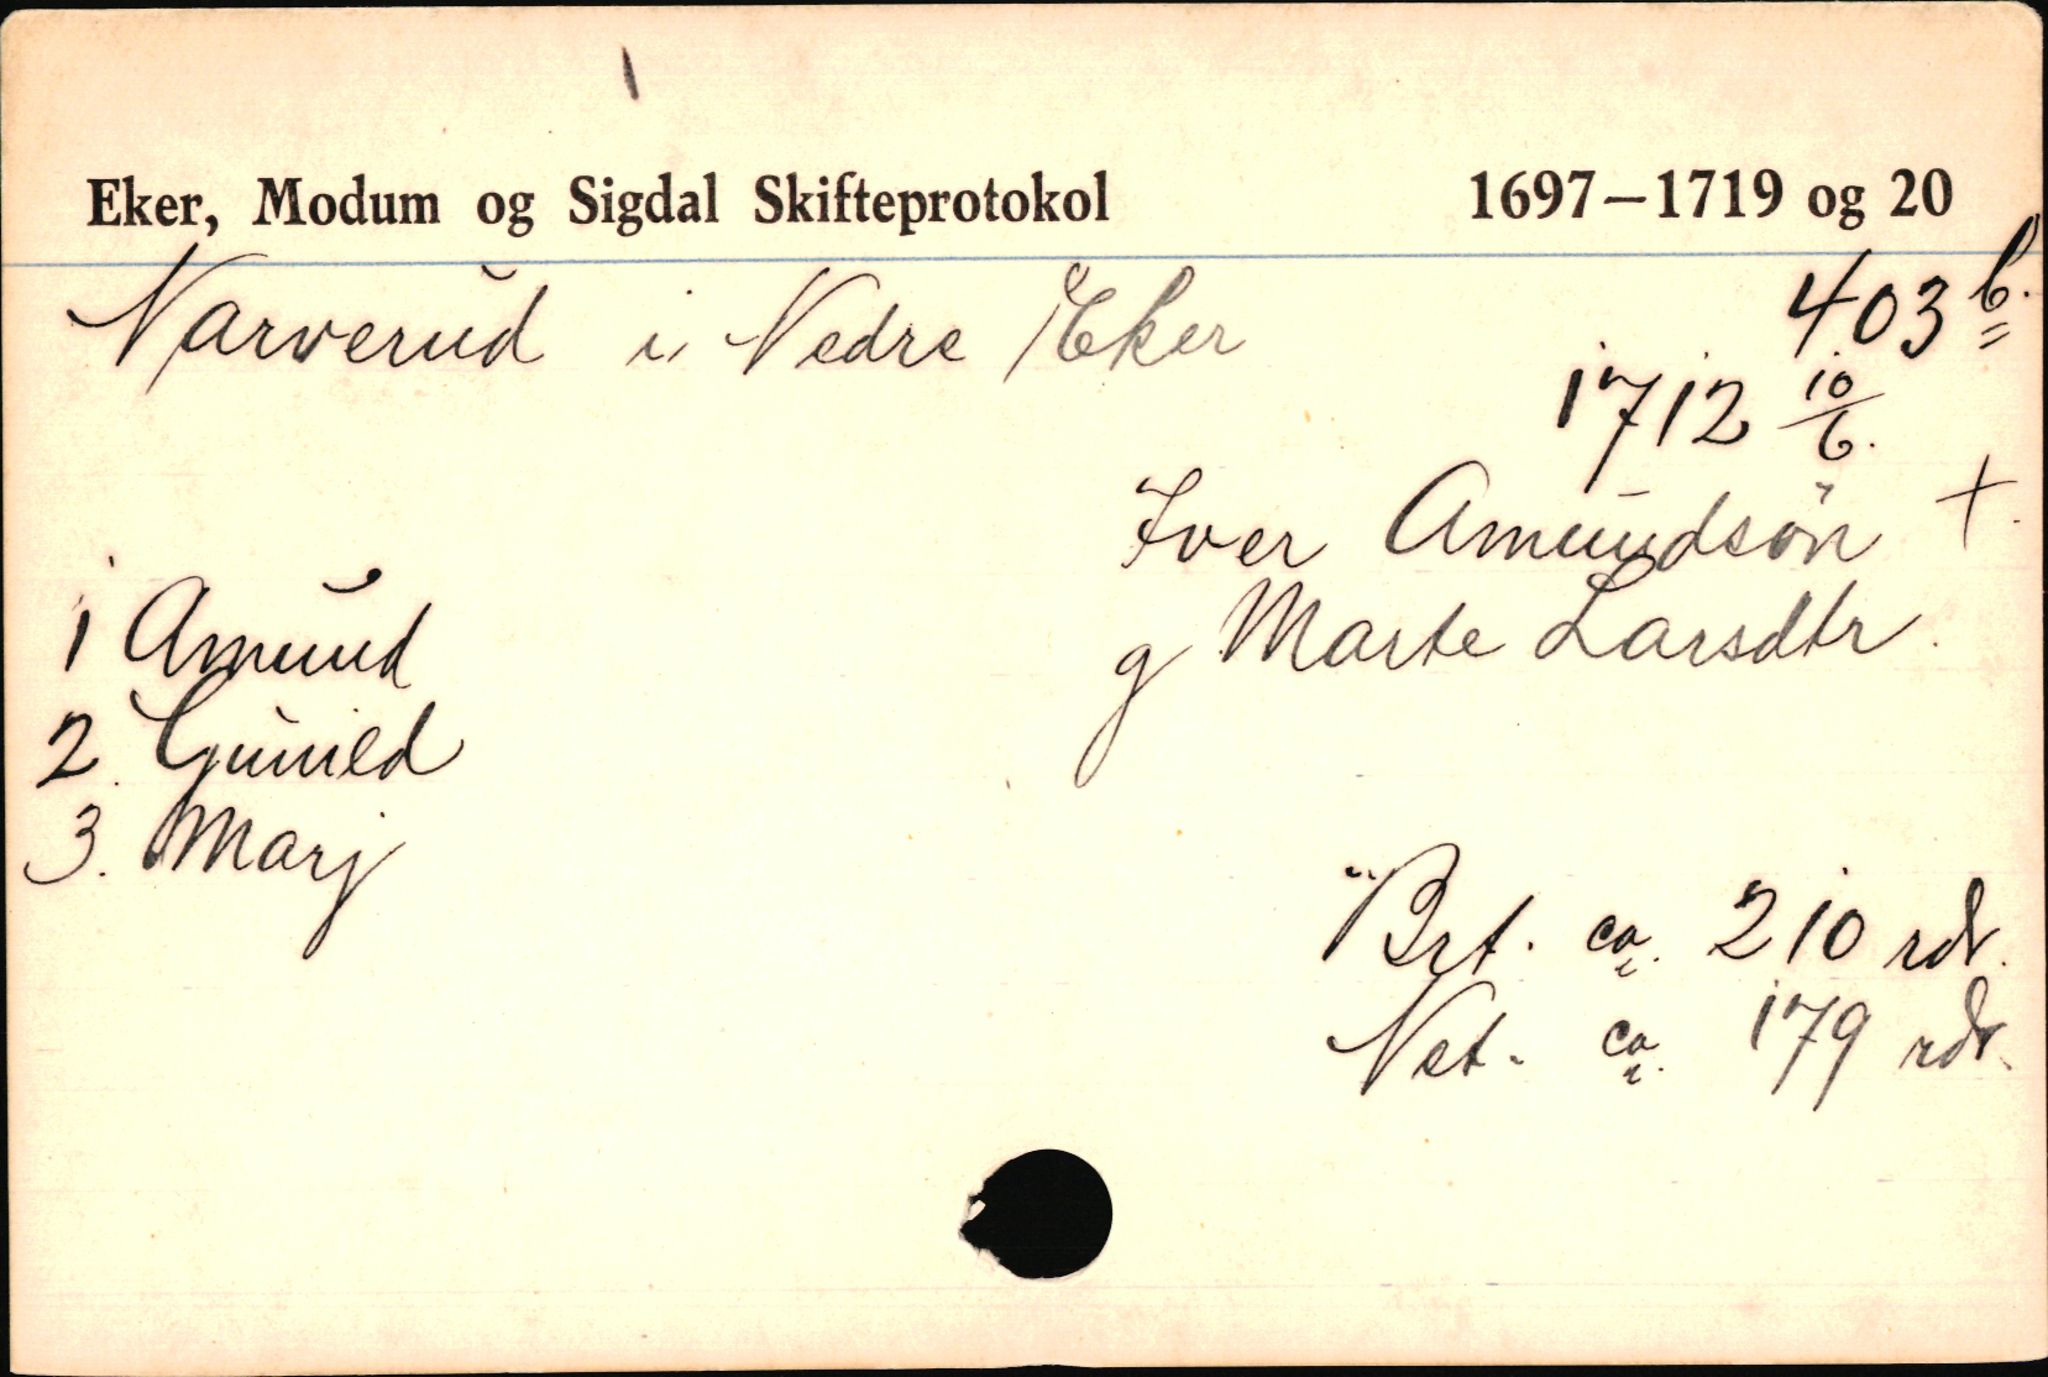 Eker, Modum og Sigdal Skifteprotokol 1697–1719 og 20
Narverud i Nedre Eker 403 b.
1712 10/6.
Iver Amundsön +.
g Marte Larsdtr.
1 Amund
2. Gunild
3. Marj
Brt. ca. 210 rdr.
Net. ca. 179 rdr.